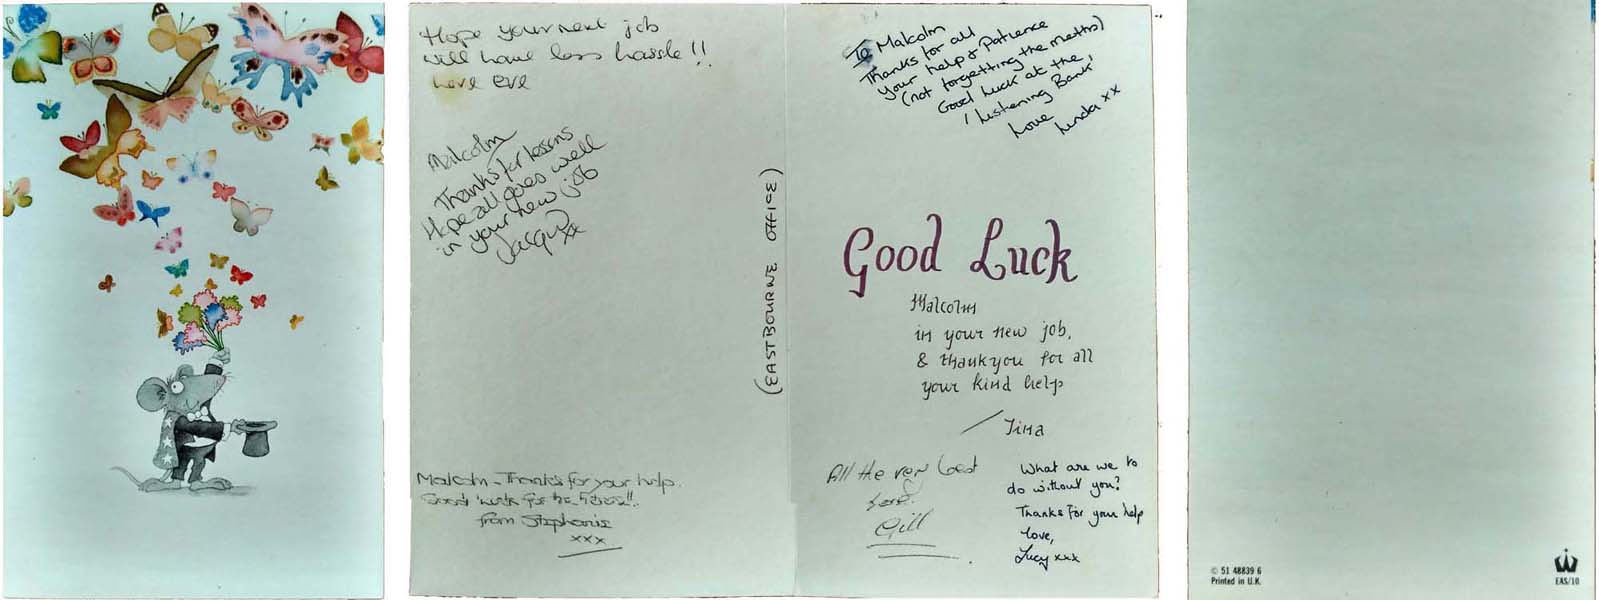 Hope your next job
will have less hassle!!
Love Eve
Malcolm
Thanks for lessons
Hope all goes well
in your new job
Jacqui
xx
Malcolm - Thanks for your help.
Good luck for the future!!
from Stephanie
xxx
(EASTBOURNE OFFICE)
To Malcolm
Thanks for all
your help & Patience
(not forgetting the maths)
Good Luck at the
'Listening Bank'
Love
Linda xx
Good Luck
Malcolm
in your new job,
& thankyou for all
your kind help
Tina
All the very best
Love
Gill
What are we to
do without you?
Thanks for your help
Love,
Lucy xxx
© 51 48839 6
Printed in U.K.
EAS/10